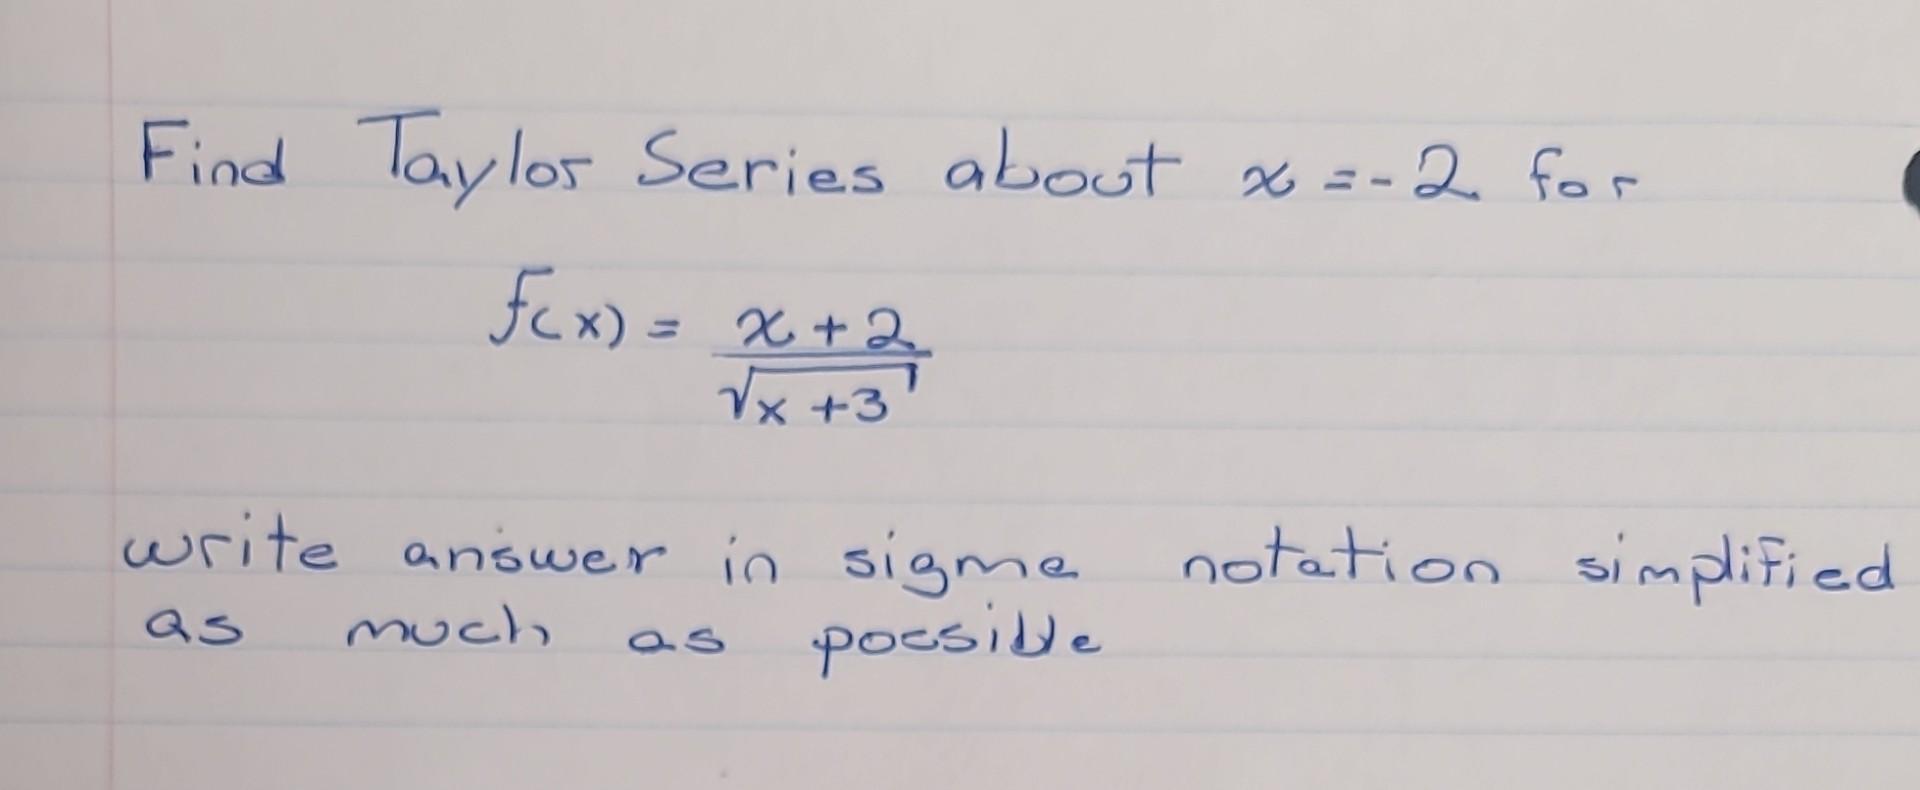 Find Taylor Series about x = -2 for
f(x) = x + 2 / √x + 3
write answer in sigma notation simplified
as much as possible